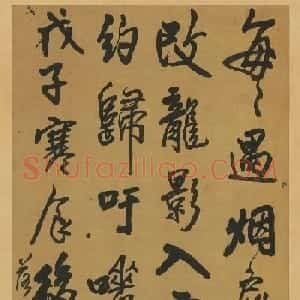 每每遇烟
改龍影入
約歸吁嗟
戊子寒食後
Shufaziliao.com